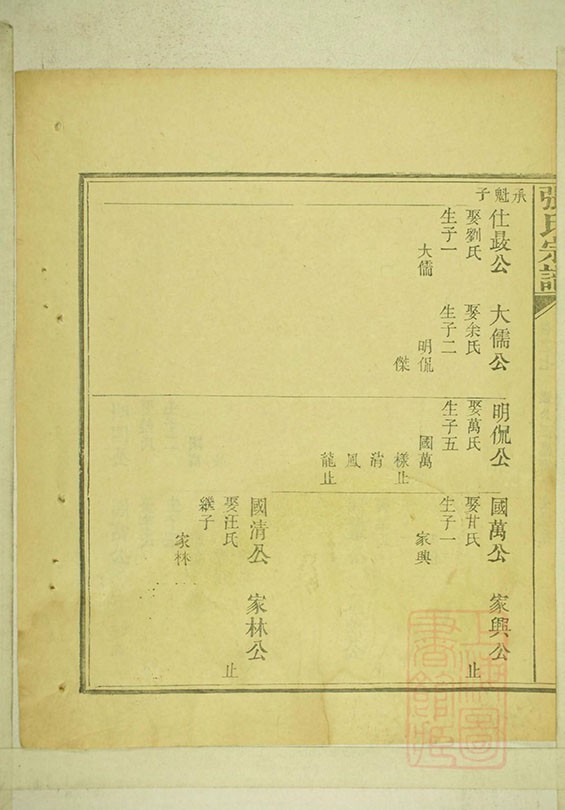 張氏宗譜
承魁子
仕最公
娶劉氏
生子一
大儒
大儒公
娶余氏
生子二
明侃
傑
明侃公
娶萬氏
生子五
國萬
樣止
清
鳳
龍止
國萬公
娶甘氏
生子一
家興
家興公
止
國清公
娶汪氏
繼子
家林
家林公
止